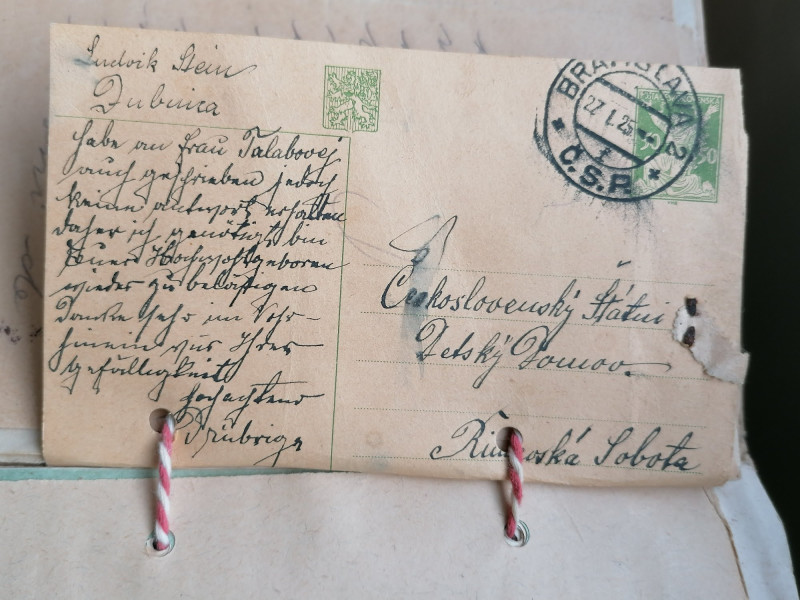 Ludvik Stein
Dubnica
habe an Frau Talabovej
auch geschrieben jedoch
keine antwort erhalten
daher ich genötigt bin
Euer Hochwohlgeboren
wieder zu belästigen
Danke sehr im Vohr-
hinein vür Ihrer
gefälligkeit
hochachtend
BRATISLAVA 2
27.I.25
Č.S.R.
50
Československý Štátni
Detský Domov
Rimavská Sobota